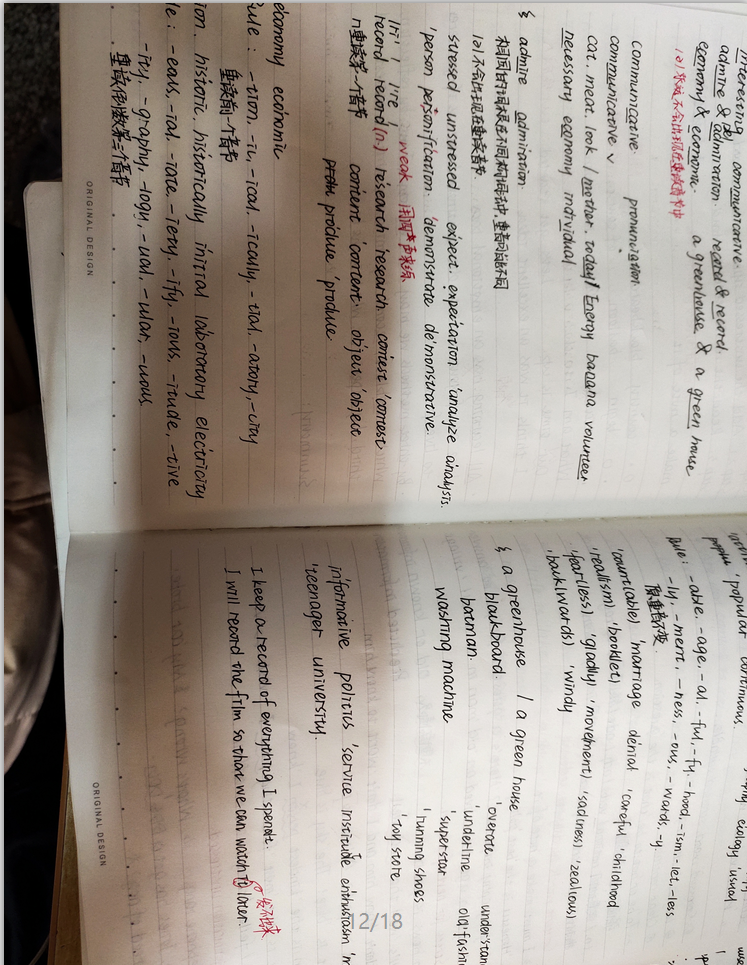 interesting communicative
admire & admiration. record & record.
economy & economic. a greenhouse & a green house
communicative pronunciation
communicative
cat. meat. look / mother. today / Energy banana volunteer
necessary economy individual
§ admire admiration
相同的词根在不同的词中,重音可能不同
stressed unstressed expect. expectation 'analyze analysis.
'person personification. 'demonstrate de'monstrative.
weak
record record(n.) research 'research contest 'contest
content 'content object 'object
produce 'produce
economy economic
-tion, -ic, -ical, -ically, -tial, -atory, -city
重读前一个音节
historic. historically initial laboratory electricity
-eous, -ial, -iate, -iety, -ify, -ious, -itude, -tive
-ity, -graphy, -logy, -ual, -ular, -uous.
重读倒数第三个音节
ORIGINAL DESIGN
'popular continuous.
ecology 'usual
Rule: -able. -age. -al. -ful. -fy. -hood. -ism. -let. -less
-ly. -ment. -ness. -ous. -wards. -y.
原重音不变.
'count(able) 'marriage denial 'careful 'childhood
'real(ism) 'book(let)
'fear(less) 'gladly) 'move(ment) 'sad(ness) 'zeal(ous)
'back(wards) 'windy
§ a greenhouse / a green house
blackboard. 'overate
batman. 'underline old'fashi
washing machine 'superstar
'running shoes
'toy store
informative politics 'service institute enthusiasm
'teenager university.
I keep a record of everything I spend.
I will record the film so that we can watch it later.
ORIGINAL DESIGN
12/18